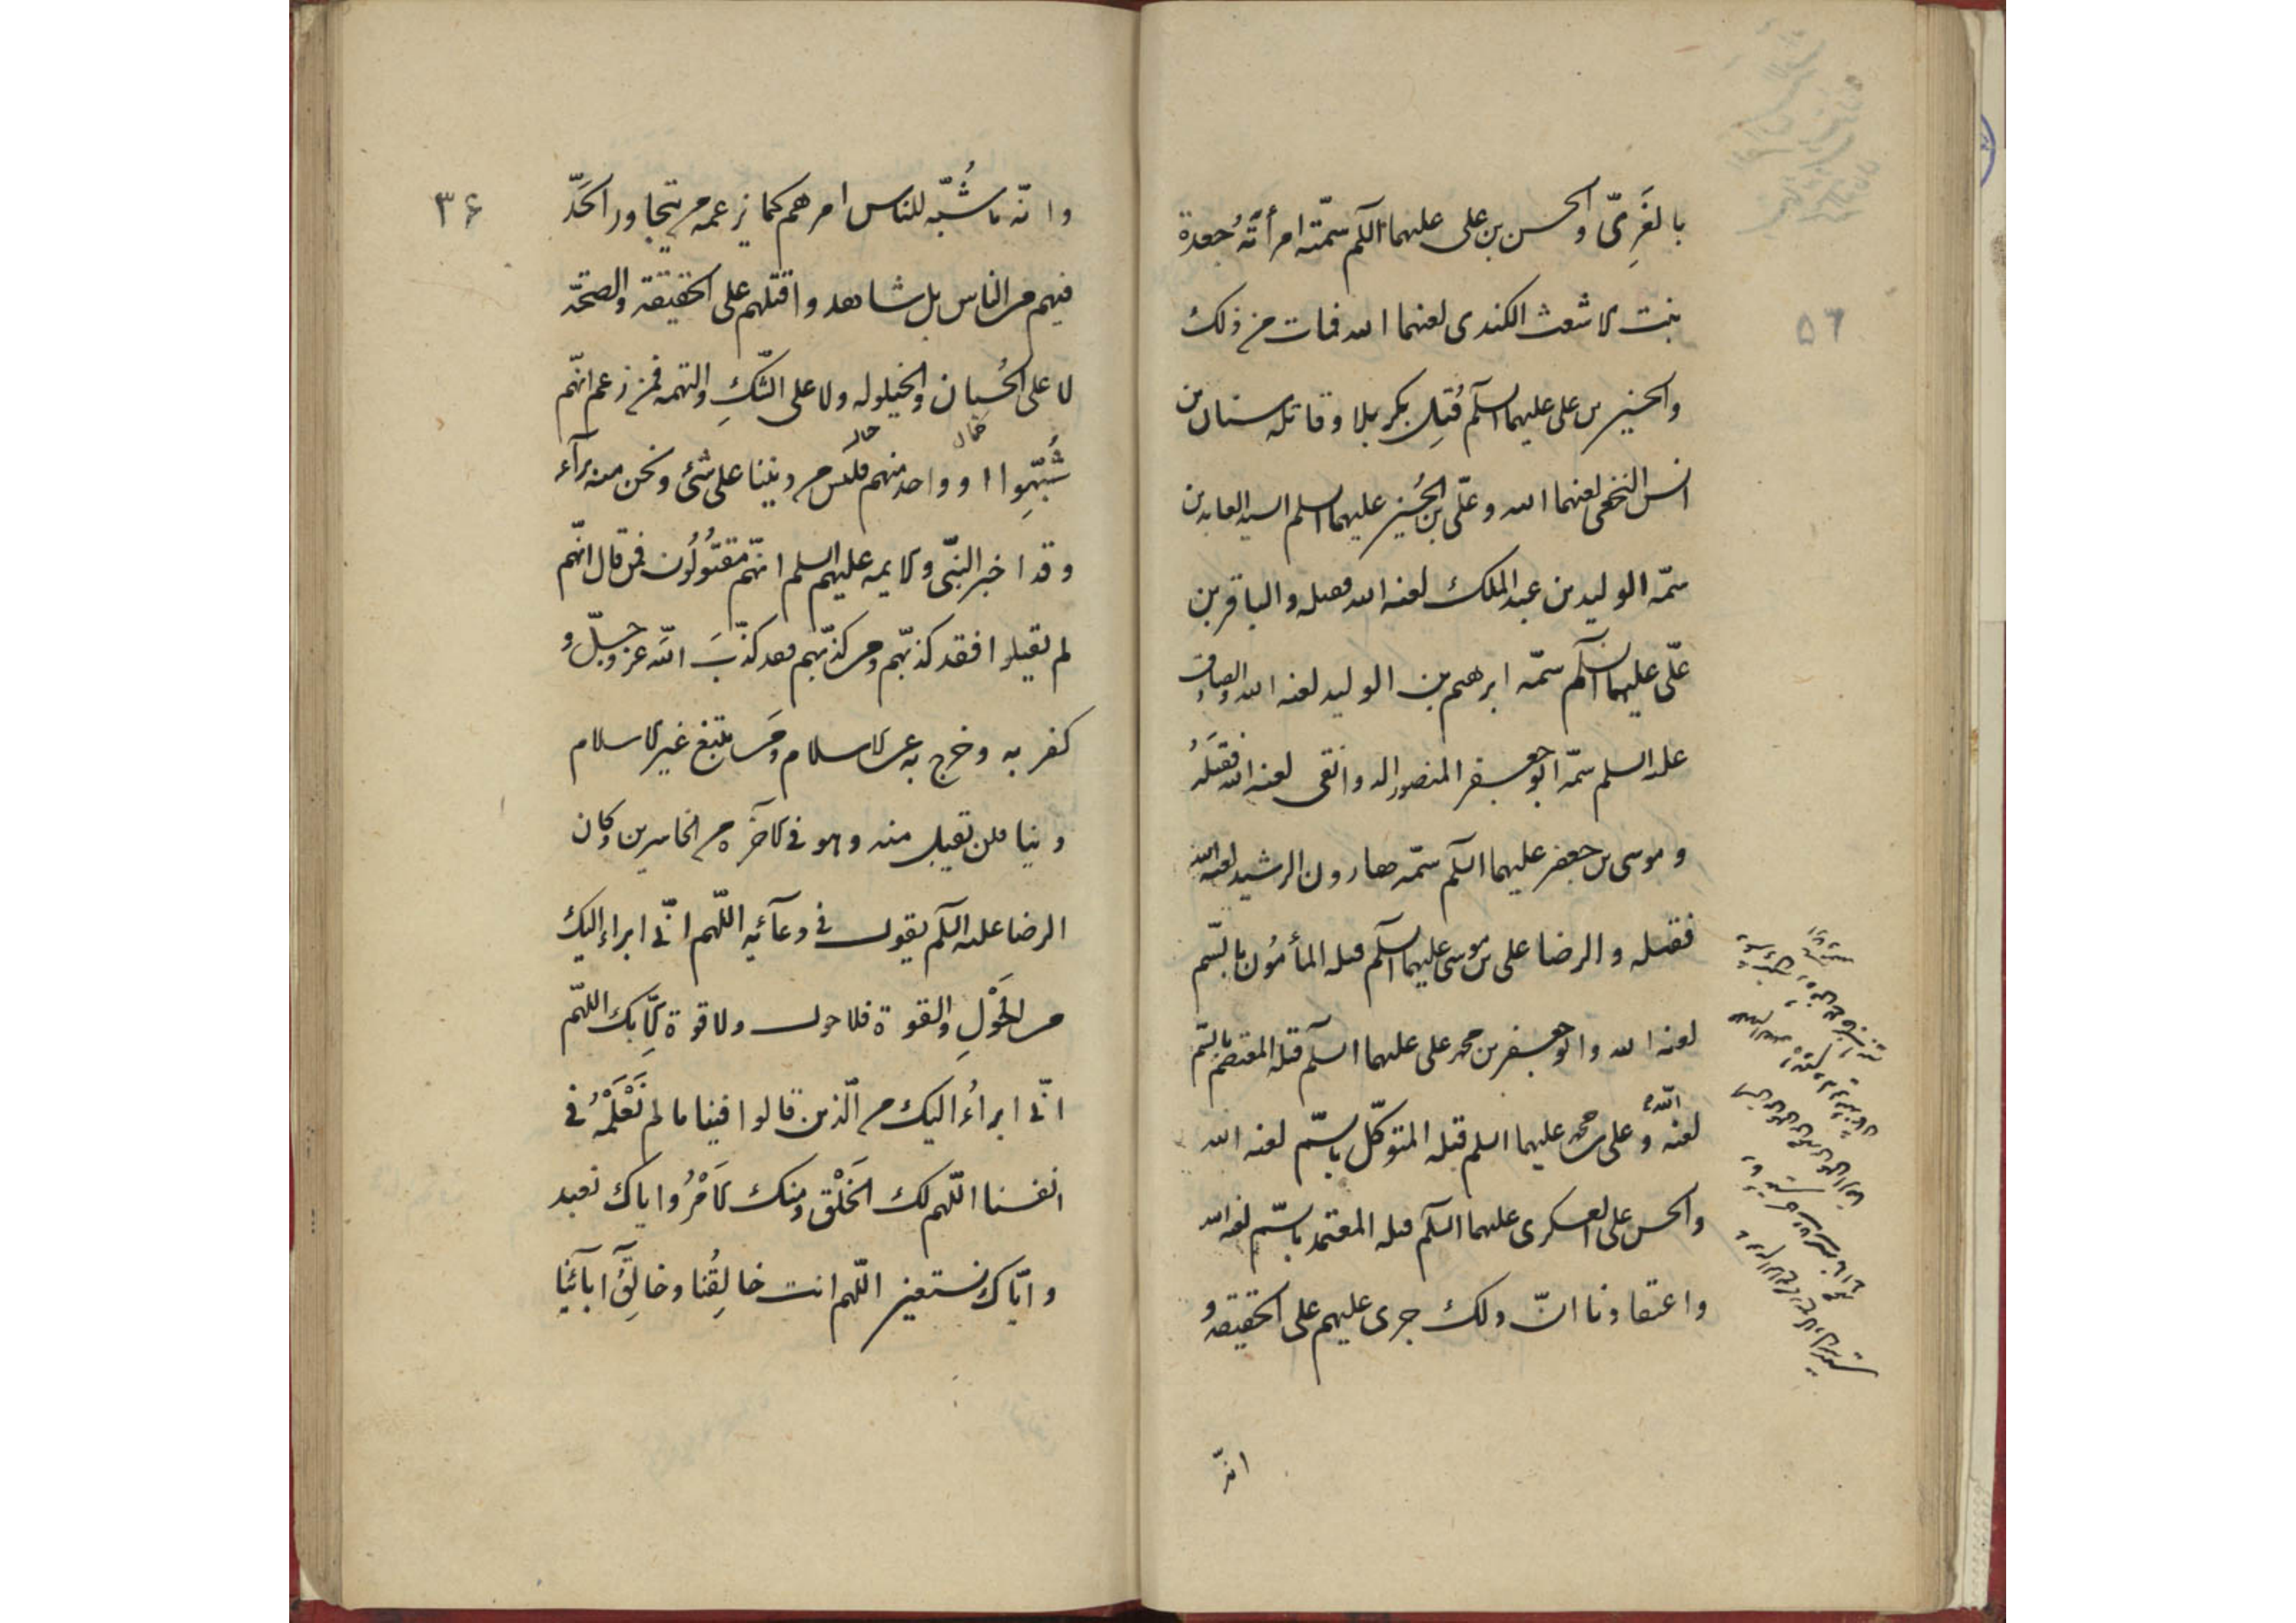 بالغَرِىّ والحسن بن على عليهما السلم سمّته امرأتَهُ جعدة
بنت الاشعث الكندى لعنهما الله فمات من ذلك
والحسين بن على عليهما السلم قُتِل بكربلا وقاتله سنان بن
انس النخعى لعنهما الله وعلىّ بن الحُسين عليهما السلم السيد العابدين
سمّه الوليد بن عبد الملك لعنه الله فقتله والباقر بن
علّى عليهما السلم سمّه ابرهيم بن الوليد لعنه الله والصادق
عليه السلم سمّه ابو جعفر المنصور الدوانقى لعنه الله فقتَلهُ
وموسى بن جعفر عليهما السلم سمّه هارون الرشيد لعنه الله
فقتله والرضا على بن موسى عليهما السلم قتله المأمُون بالسّم
لعنه الله وابو جعفر بن محمد على عليهما السلم قتله المعتصم بالسّم
لعنه اللّه وعلى بن محمد عليهما السلم قتله المتوكّل بالسّم لعنه الله
والحسن على العسكرى عليهما السلم قتله المعتمد بالسّم لعنه الله
واعتقادنا انّ ذلك جرى عليهم على الحقيقه و
انّه
٥٦
٣۶
وانّه ما شُبّه للناس امرهم كما يزعمه من يتجاوز الحَدّ
فيهم من الناس بل شاهدوا قتلهم على الحقيقة والصحّة
لا على الحُسبان والخيلوله ولا على الشّكِ والتهمه فمن زعم انّهم
شُبّهِوا او واحد منهم فليس من ديننا على شئ ونحن منه برآء
وقد اخبر النبّى والايمه عليهم السلم انّهم مقتوُلُون فمن قال انّهم
لم يقتلوا فقد كذبّهم ومن كذّبهم فقد كذّبَ اللّه عز وجلّ و
كفر به وخرج به عن الاسلام ومَن يبتغ غير الاسلام
دينا فلن يقبل منه وهو فى الآخرة من الخاسرين وكان
الرضا عليه السلم يقول فى دعآئه اللّهم انّى ابراء اليك
من الحَوْلِ والقوة فلا حول ولا قوة الّا بك اللهّم
انّى ابراءُ اليك من الّذين قالوا فينا ما لم نَعْلَمْهُ فى
انفسنا اللّهم لك الخَلْق ومنك الامْرُ واياك نعبد
وايّاك نستعين اللّهم انت خالِقُنا وخالِقُ آبآئنا